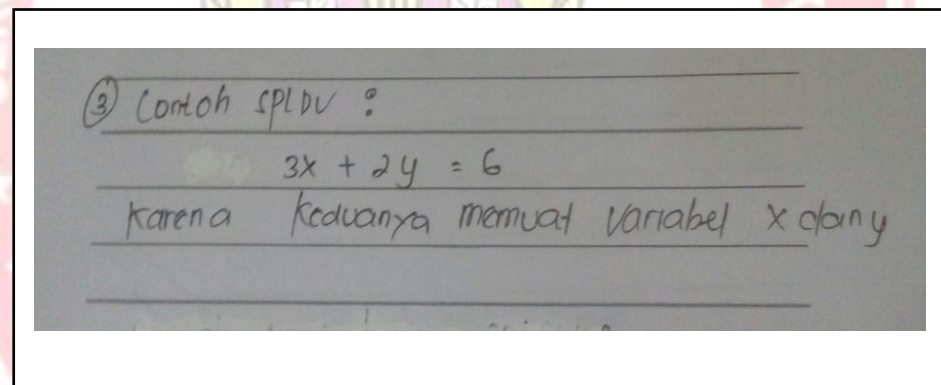 ③ Contoh SPLDV :
3x + 2y = 6
Karena Keduanya memuat variabel x dan y